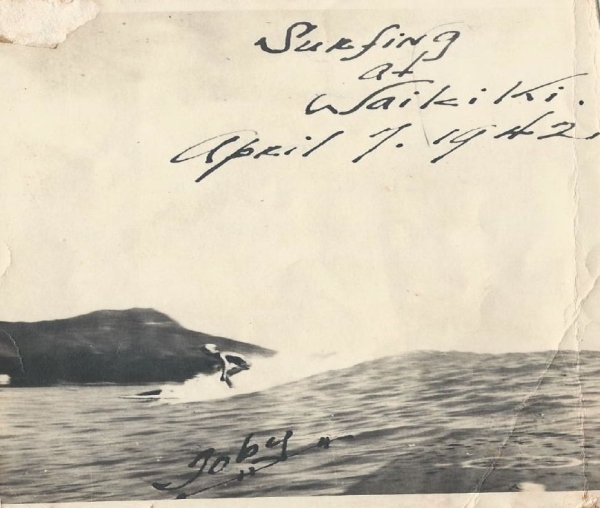 Surfing
at
Waikiki.
April 7. 1942
Toby